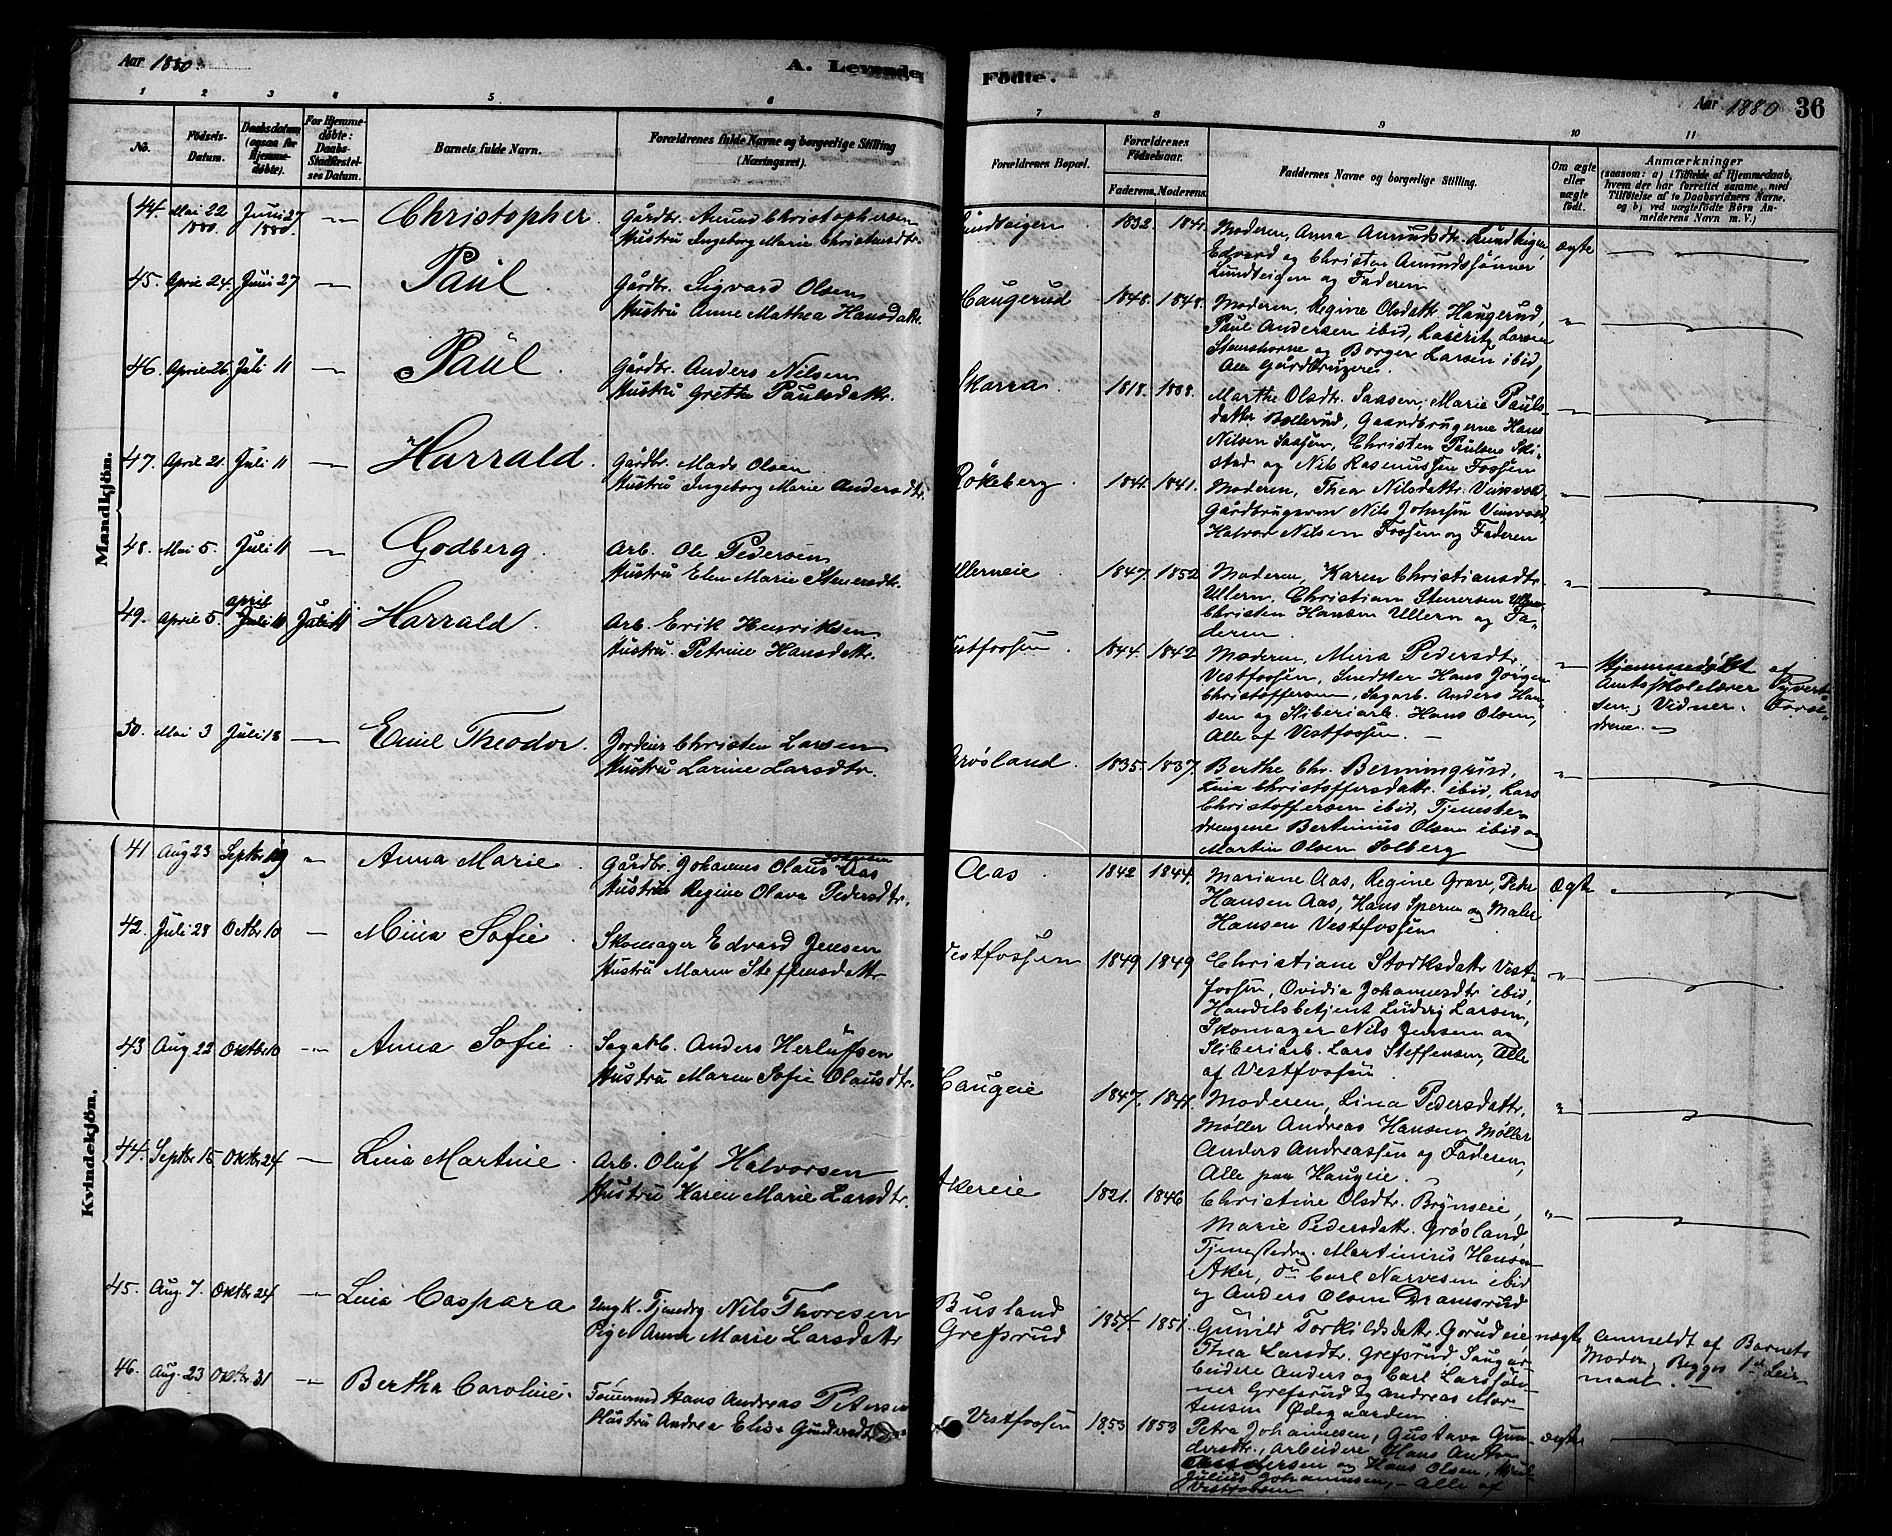 Aar 1880.
A. Levende
1 2 3 4 5 6
No.
Fødsels-Datum.
Daabsdatum (ogsaa for Hjemmedøbte).
For Hjemmedøbte: Daabs-Stadfæstelses Datum.
Barnets fulde Navn.
Forældrenes fulde Navne og borgerlige Stilling (Næringsvei).
Mandkjøn.
44. Mai 22 1880. Juni 27 1880. -„- Christopher. Gårdbr. Amund Christophersen
Hustru Ingeborg Marie Christensdtr.
45. April 24. Juni 27 -„- Paul. Gårdbr. Sigvard Olsen
Hustru Anne Mathea Hansdattr.
46. April 26. Juli 11 -„- Paul. Gårdbr. Anders Nilsen
Hustru Grethe Paulsdattr.
47. April 21. Juli 11 -„- Harrald. Gårdbr. Mads Olsen
Hustru Ingeborg Marie Andersdtr.
48. Mai 5. Juli 11 -„- Godberg. Arb. Ole Pedersen
Hustru Elen Marie Stenersdtr.
49. April 5. april Juli 11 Juli 11 Harrald. Arb. Erik Henriksen
Hustru. Petrine Hansdattr.
50. Mai 3 Juli 18 -„- Emil Theodor. Jordeier Christen Larsen
Hustru Larine Larsdtr.
Kvindekjøn.
41 Aug 23 Septbr 19 „ Anna Marie. Gårdbr. Johannes Olaus Aas
Hustru Regine Olava Pedersdtr.
42. Juli 28 Octbr 10 -„- Mina Sofie. Skomager Edvard Jensen
Hustru Maren Steffensdattr
43 Aug 22 Oktbr 10 -„- Anna Sofie. Sagarb. Anders Herlufsen
Hustru Maren Sofie Olausdtr.
44. Septbr 15 Oktbr 24 -„- Lina Martine. Arb. Oluf Halvorsen
Hustru Karen Marie Larsdtr.
45. Aug 7. Oktbr 24 -„- Lina Caspara Ungk. Tjenedrg Nils Thoresen
Pige Anna Marie Larsdattr
46. Aug. 23 Oktbr 31 -„- Bertha Caroline. Tømmermd Hans Andreas Petersen
Hustru Andrea Elise Gundersdtr
Fødte.
Aar 1880 36
7 8 9 10 11
Forældrenes Bopæl.
Forældrenes Fødselsaar.
Faderens. Moderens.
Faddernes Navne og borgerlige Stilling.
Om ægte eller uægte født.
Anmærkninger
(saasom: a) i Tilfælde af Hjemmedaab, hvem der har forrettet samme, med Tilføielse af to Daabsvidners Navne. og b) ved uægtefødte Børn Anmelderens Navn m. V.)
Lundteigen 1832. 1841. Moderen, Anna Amundsdtr. Lundteigen, ægte
Edvard og Christen Amundsønner
Lundteigen og Faderen
Haugerud 1848. 1848. Moderen, Regine Olsdattr. Haugerud, „
Paul Andersen ibid, Lauritz Larsen
Stenshorne og Borger Larsen ibid,
Alle Gårdbrugere.
Skarra. 1818. 1838. Marthe Olsdtr. Saasen, Marie Pauls- „
datter Bollerud, Gaardbrugerne Hans
Nilsen Saasen, Christen Paulsen Ski-
stad og Nils Rasmussen Fossen
Røkeberg. 1844. 1841. Moderen, Thea Nilsdattr. Vinvold, „
Gårdbrugeren Nils Johnsen Vinvold,
Halvor Nilsen Fossen og Faderen
Ullerneie 1847. 1852 Moderen, Karen Christiansdtr. „
Ullern, Christian Stenersen Ullern,
Christen Hansen Ullern og Fa-
deren.
Vestfossen. 1844. 1842 Moderen, Mina Pedersdtr, „ Hjemmedøbt af
Vestfossen, Snedker Hans Jørgen Amtsskolelærer Syvert-
Christoffersen, Sagarb. Anders Han- sen; Vidner: Foræl-
sen og Sliberiarb. Hans Olsen, drene.
Alle af Vestfossen. —
Grøsland. 1835. 1837. Berthe Chr. Berningrud, „
Lina Christoffersdattr. ibid, Lars
Christoffersen ibid, Tjeneste-
drengene Bertinius Olsen ibid og
Martin Olsen Solberg
Aas. 1842 1844. Mariane Aas, Regine Grav, Peder Ægte
Hansen Aas, Hans Speren og Maler
Hansen Vestfossen
Vestfossen 1849 1849 Christiane Storksdattr. Vest- „
fossen, Ovidia Johannesdtr ibid,
Handelsbetjent Ludvig Larsen,
Skomager Nils Jensen og
Sliberiarb. Lars Steffensen, Alle
af Vestfossen.
Haugeie 1847. 1841. Moderen, Lina Pedersdattr, „
Møller Andreas Hansen, Møller
Anders Andreassen og Faderen,
Alle paa Haugeie.
Akereie 1821. 1846 Christine Olsdtr. Brynseie, „
Marie Pedersdattr. Grøsland,
Tjenestedrg. Martinius Hansen
Aker, do Carl Narvesen ibid
og Anders Olsen Dramsrud
Busland
Grefsrud 1854. 1851. Gunild Torkildsdattr. Gorudeie, uægte Anmeldt af Barnets
Thea Larsdtr. Grefsrud, Sagar- Moder; Begges 1ste Leier-
beidere Anders og Carl Larssøn- maal. —
ner Grefsrud og Andreas Mor-
tensen Ødegaarden.
Vestfossen 1853 1853 Petra Johannesen, Gustava Gun- ægte
dersdtr., Arbeidere Hans Anton
Andersen og Hans Olsen,
Julius Johannesen, — Alle af
Vestfossen.